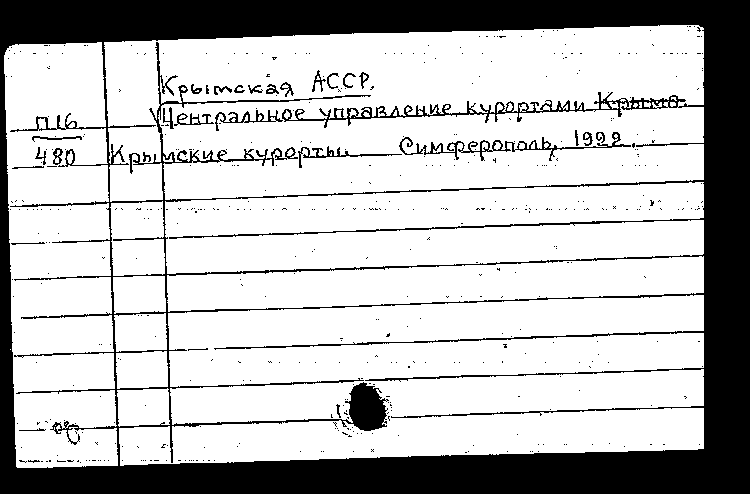 Крымская АССР.
П16 Центральное управление курортами Крыма
480 Крымские курорты. Симферополь, 1922.